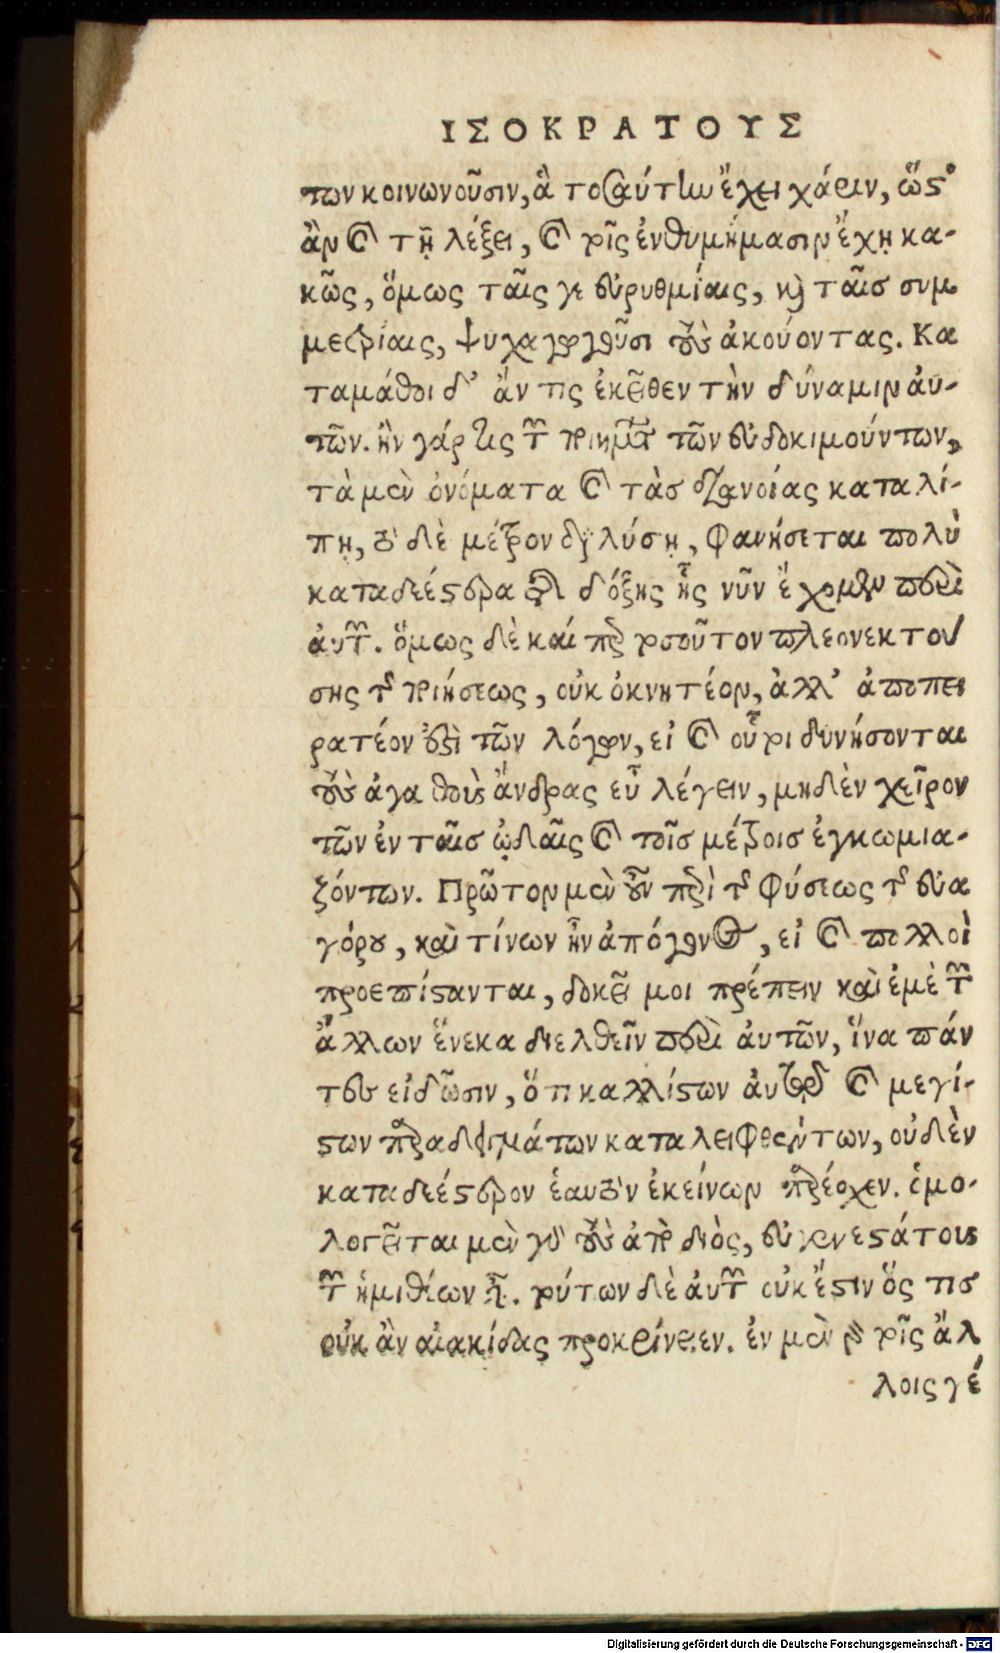 ΙΣΟΚΡΑΤΟΥΣ
των κοινωνοῦσιν, ἃ τοσαύτην ἔχει χάριν, ὥστ᾽
ἂν καὶ τῇ λέξει, καὶ τοῖς ἐνθυμήμασιν ἔχῃ κα-
κῶς, ὅμως ταῖς γε εὐρυθμίαις, καὶ ταῖσ συμ
μετρίαις, ψυχαγωγοῦσι τοὺς ἀκούοντας. Κα
ταμάθοι δ᾽ ἄν τις ἐκεῖθεν τὴν δύναμιν ἀυ-
τῶν. ἢν γάρ τις τῶν ποιημάτων τῶν εὐδοκιμούντων,
τὰ μὲν ὀνόματα καὶ τὰσ διανοίας καταλί-
πῃ, τὸ δὲ μέτρον διαλύσῃ, φανήσεται πολὺ
καταδεέστερα τῆς δόξης ἧς νῦν ἔχομεν περὶ
ἀυτῶν. ὅμως δὲ καίπερ τοσοῦτον πλεονεκτού
σης τῆς ποιήσεως, οὐκ ὀκνητέον, ἀλλ᾽ ἀποπει
ρατέον ἐστὶ τῶν λόγων, εἰ καὶ οὗτοι δυνήσονται
τοὺς ἀγαθοὺς ἄνδρας εὖ λέγειν, μηδὲν χεῖρον
τῶν ἐν ταῖσ ᾠδαῖς καὶ τοῖσ μέτροισ ἐγκωμια-
ζόντων. Πρῶτον μὲν οὖν περὶ τῆς φύσεως τῆς εὐα
γόρου, καὶ τίνων ἦν ἀπόγονος, εἰ καὶ πολλοὶ
προεπίστανται, δοκεῖ μοι πρέπειν καὶ ἐμὲ τῶν
ἄλλων ἕνεκα διελθεῖν περὶ ἀυτῶν, ἵνα πάν
τες εἰδῶσιν, ὅτι καλλίστων ἀυτῷ καὶ μεγί-
στων παραδειγμάτων καταλειφθέντων, οὐδὲν
καταδεέστερον ἑαυτὸν ἐκείνων παρέσχεν. ὁμο-
λογεῖται μὲν γὰρ τοὺς ἀπὸ διὸς, εὐγενεστάτους
τῶν ἡμιθέων εἶναι. τούτων δὲ ἀυτῶν οὐκ ἔστιν ὅς τισ
οὐκ ἂν αἰακίδας προκρίνειεν. ἐν μὲν γὰρ τοῖς ἄλ
λοις γέ
Digitalisierung gefördert durch die Deutsche Forschungsgemeinschaft - DFG